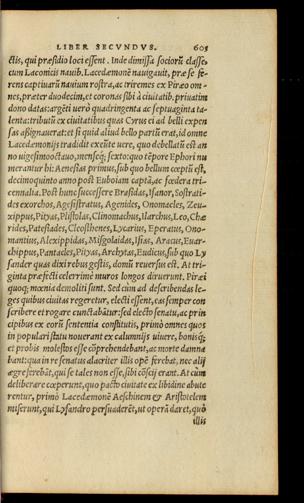 LIBER SECVNDVS. 605
ctis, qui præsidio loci essent. Inde dimissa sociorũ classe,
cum Laconicis nauib. Lacedæmonẽ nauigauit, præ se fe-
rens captiuarũ nauium rostra, ac triremes ex Piræo om-
nes, præter duodecim, et coronas sibi à ciuitatib. priuatim
dono datas: argẽti uerò quadringenta ac septuaginta ta-
lenta: tributũ ex ciuitatibus quas Cyrus ei ad belli expen
sas aßignauerat: et si quid aliud bello partũ erat, id omne
Lacedæmonijs tradidit exeũte uere, quo debellatũ est an
no uigesimooctauo, menseq́; sexto: quo tẽpore Ephori nu
merantur hi: Aenesias primus, sub quo bellum cœptũ est,
decimoquinto anno post Euboiam captã, ac fœdera tri-
cennalia. Post hunc successere Brasidas, Isanor, Sostrati-
des exorchos, Agesistratus, Agenides, Onomacles, Zeu-
xippus, Pityas, Plistolas, Clinomachus, Ilarchus, Leo, Chæ
rides, Patesiades, Cleosthenes, Lycarius, Eperatus, Ono-
mantius, Alexippidas, Misgolaidas, Isias, Aracus, Euar-
chippus, Pantacles, Pityas, Archytas, Eudicus, sub quo Ly
sander quas dixi rebus gestis, domũ reuersus est. At tri-
ginta præfecti celerrimè muros longos diruerunt. Piræi
quoq; mœnia demoliti sunt. Sed cum ad describendas le-
ges quibus ciuitas regeretur, electi essent, eas semper con
scribere et rogare cunctabãtur: sed electo senatu, ac prin
cipibus ex eorũ sententia constitutis, primò omnes quos
in populari statu nouerant ex calumnijs uiuere, bonisq́;
et probis molestos esse cõprehendebant, ac morte damna
bant: qua in re senatus alacriter illis opẽ ferebat, nec alij
ægre ferebãt, qui se tales non esse, sibi cõscij erant. At cùm
deliberare cœperunt, quo pacto ciuitate ex libidine abute
rentur, primò Lacedæmonẽ Aeschinem & Aristotelem
miserunt, qui Lysandro persuaderẽt, ut operã daret, quò
illis